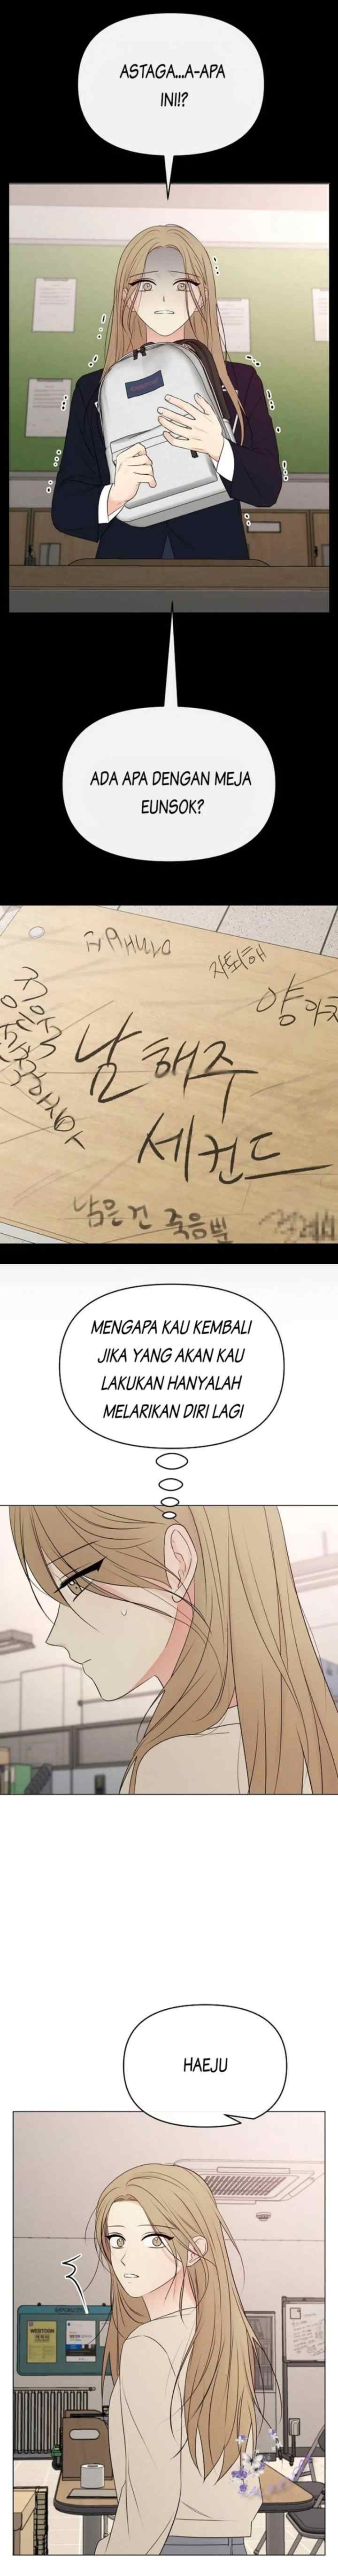 ASTAGA...A-APA
INI!?
ADA APA DENGAN MEJA
EUNSOK?
자퇴해
양아치
남해주
세컨드
남은건 죽음뿐
MENGAPA KAU KEMBALI
JIKA YANG AKAN KAU
LAKUKAN HANYALAH
MELARIKAN DIRI LAGI
HAEJU
WEBTOON